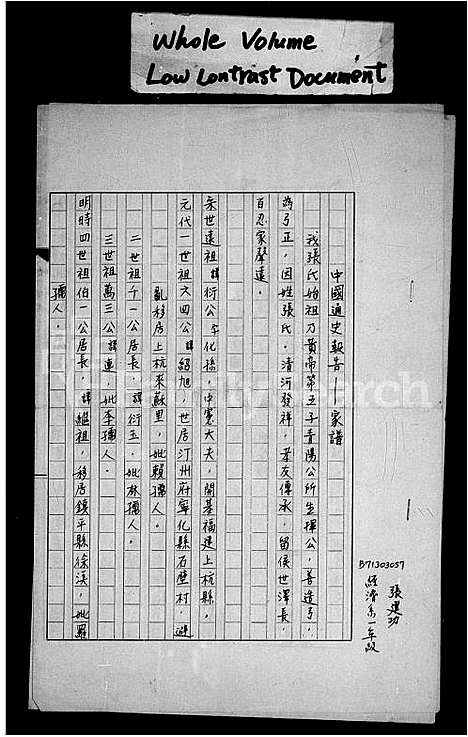 Whole Volume
Low Contrast Document
中國通史報告 家譜
我張氏始祖乃黃帝第五子青陽公所生揮公，善造弓，
為弓正，因姓張氏。清河發祥，孝友傳承，留侯世澤長，
百忍家聲遠。
宋世遠祖諱衍公字化孫，中憲大夫，開基福建上杭縣。
元代一世祖六四公諱紹旭，世居汀州府寧化縣石壁村，避
亂移房上杭來蘇里，妣賴孺人。
二世祖千一公居長，諱衍玉，妣林孺人。
三世祖萬三公諱連，妣李孺人。
明時四世祖伯一公居長，諱繼祖，移居鎮平縣徐溪，妣羅
孺人。
B71303057
張建功
經濟系一年級